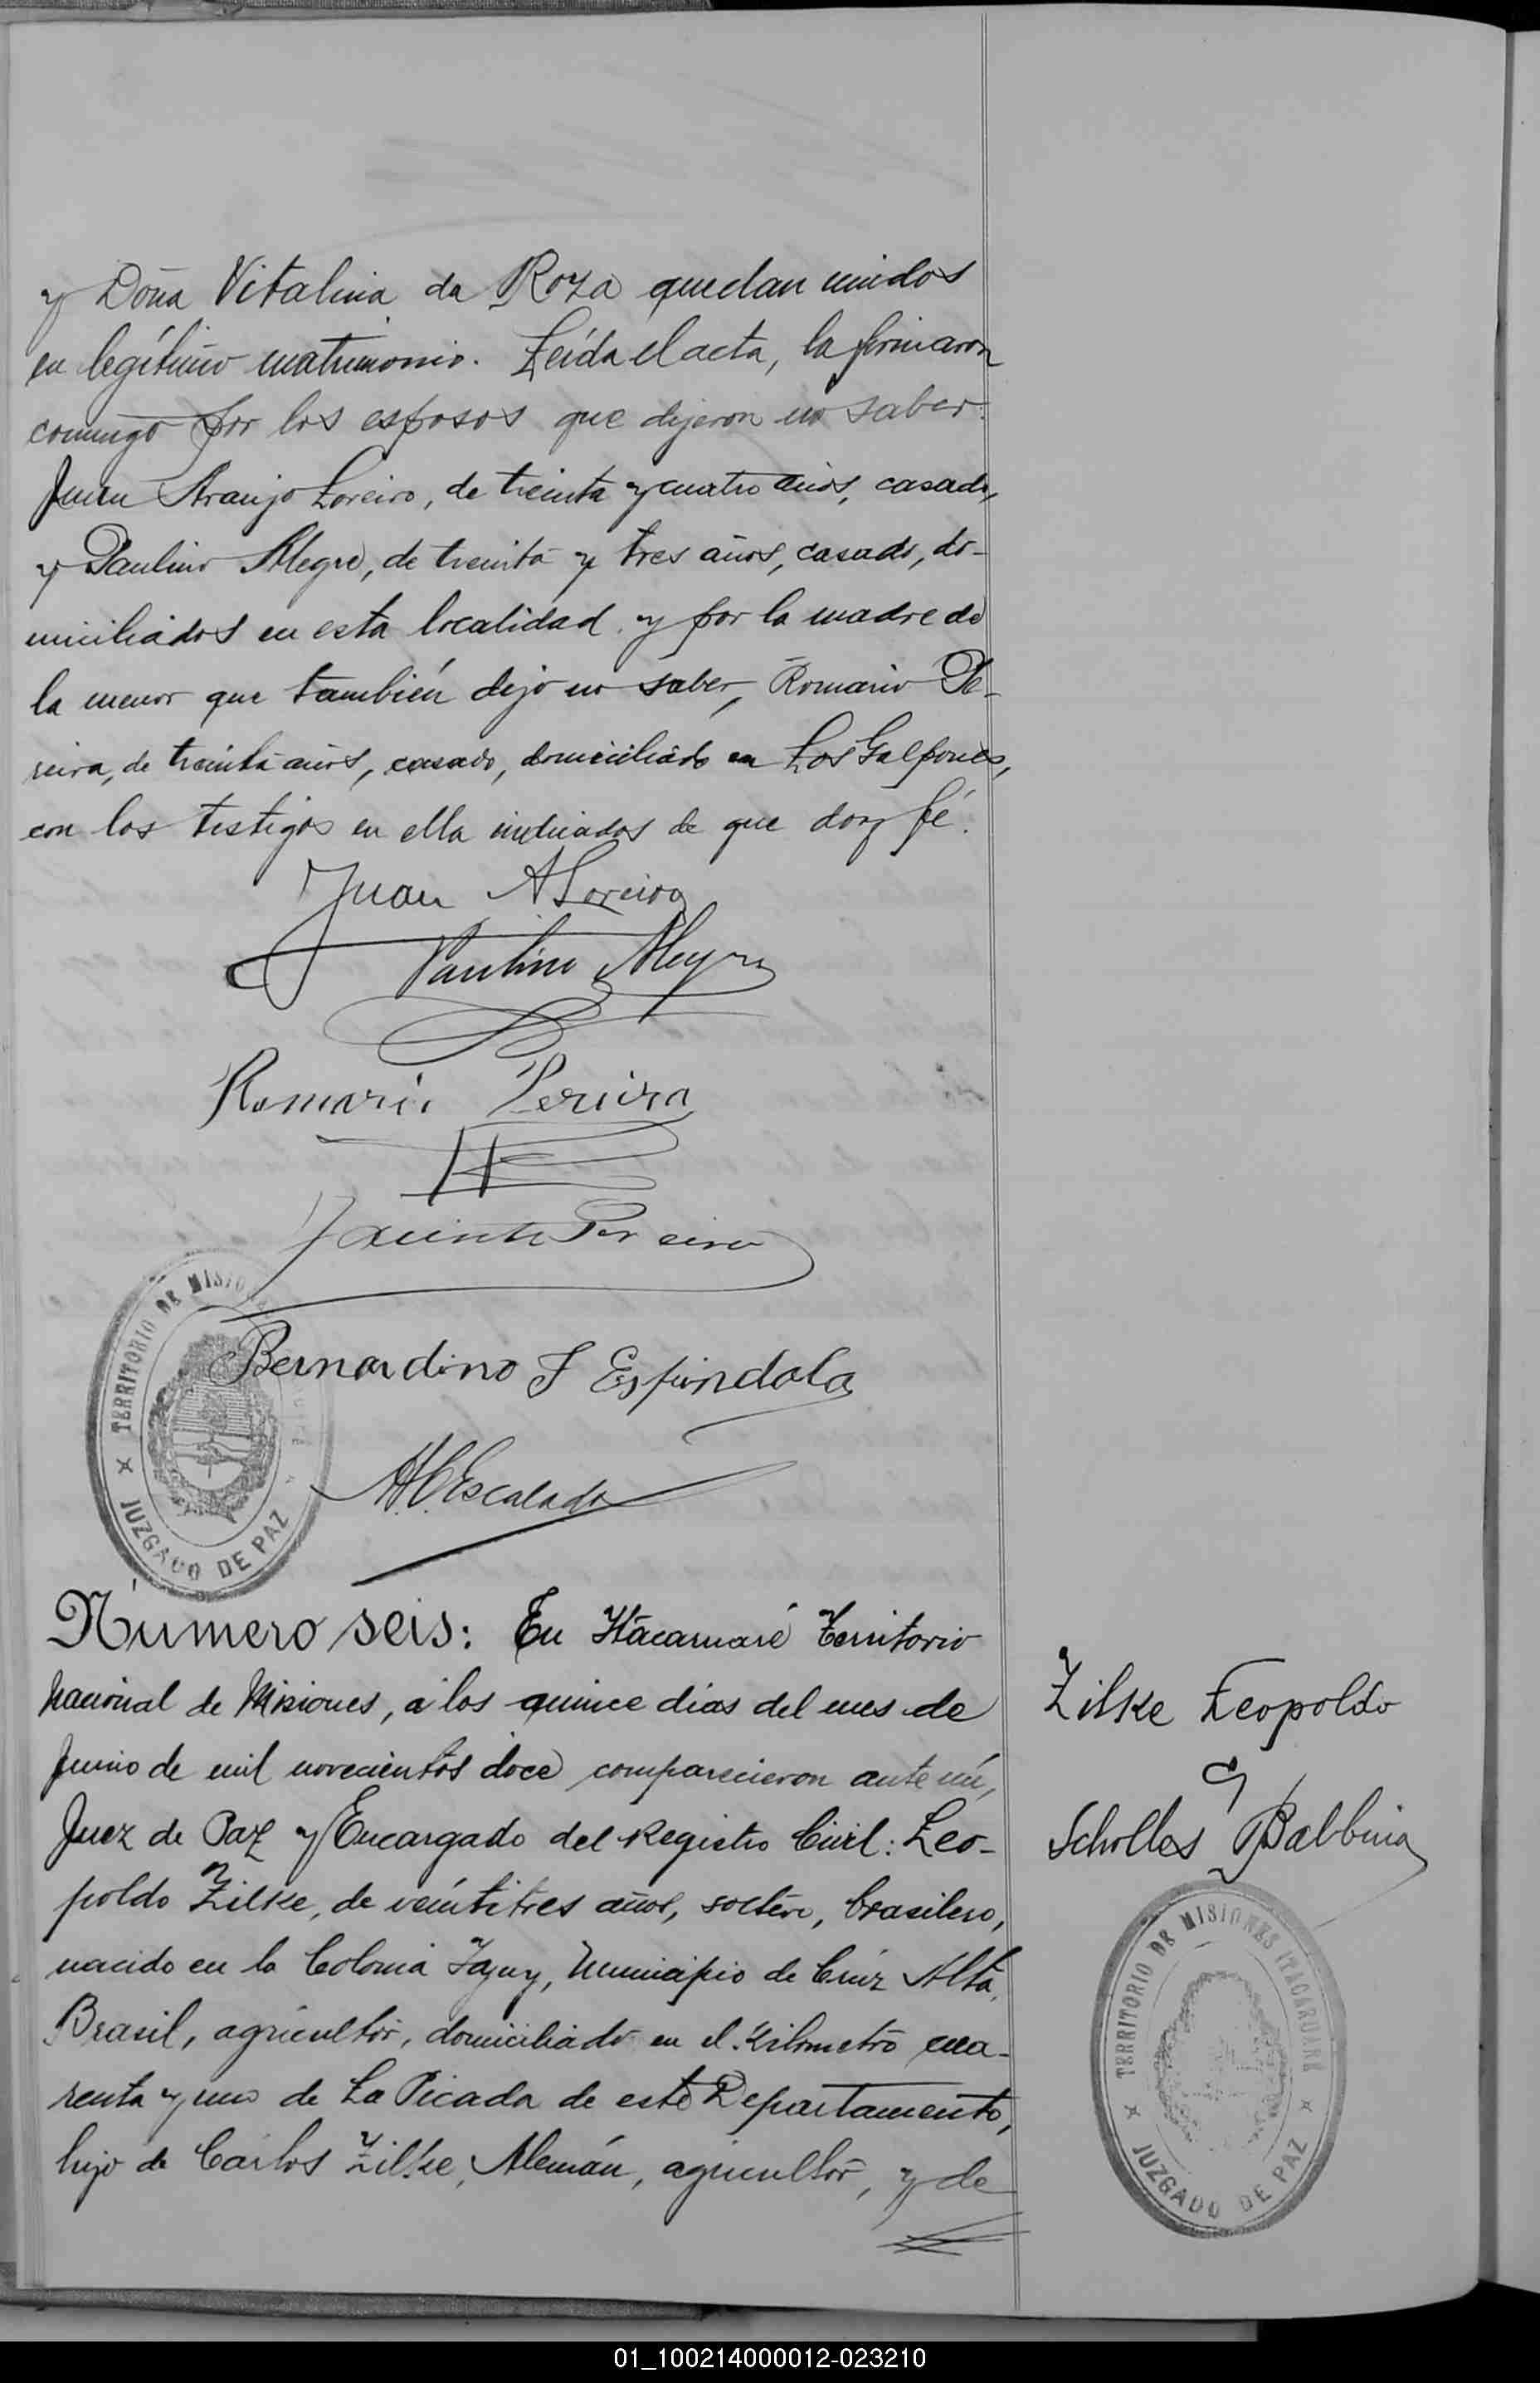 y Doña Vitalina da Roza quedan unidos
en legítimo matrimonio. Leída el acta, la firmaron
conmigo por los esposos que dijeron no saber:
Juan Araujo Loreiro, de treinta y cuatro años, casado,
y Paulino Alegre, de treinta y tres años, casado, do-
miciliados en esta localidad y por la madre de
la menor que también dijo no saber, Romario Pe-
reira, de treinta años, casado, domiciliado en Los Galpones,
con los testigos en ella indicados de que doy fé.
Juan A Loreiro
Paulino Alegre
Romario Pereira
Jacinto Pereira
TERRITORIO DE MISIONES
JUZGADO DE PAZ
Bernardino F Espindola
Escalada
Número seis: En Itacaruaré Territorio
Nacional de Misiones, á los quince días del mes de
Junio de mil novecientos doce comparecieron ante mí,
Juez de Paz y Encargado del Registro Civil: Leo-
poldo Zilke, de veintitres años, soltero, brasilero,
nacido en la Colonia Yjuy, Municipio de Cruz Alta,
Brasil, agricultor, domiciliado en el Kilometro cua-
renta y uno de La Picada de este Departamento,
hijo de Carlos Zilke, Alemán, agricultor, y de
Zilke Leopoldo
y
Scholles Balbina
TERRITORIO DE MISIONES ITACARUARE
JUZGADO DE PAZ
01_100214000012-023210